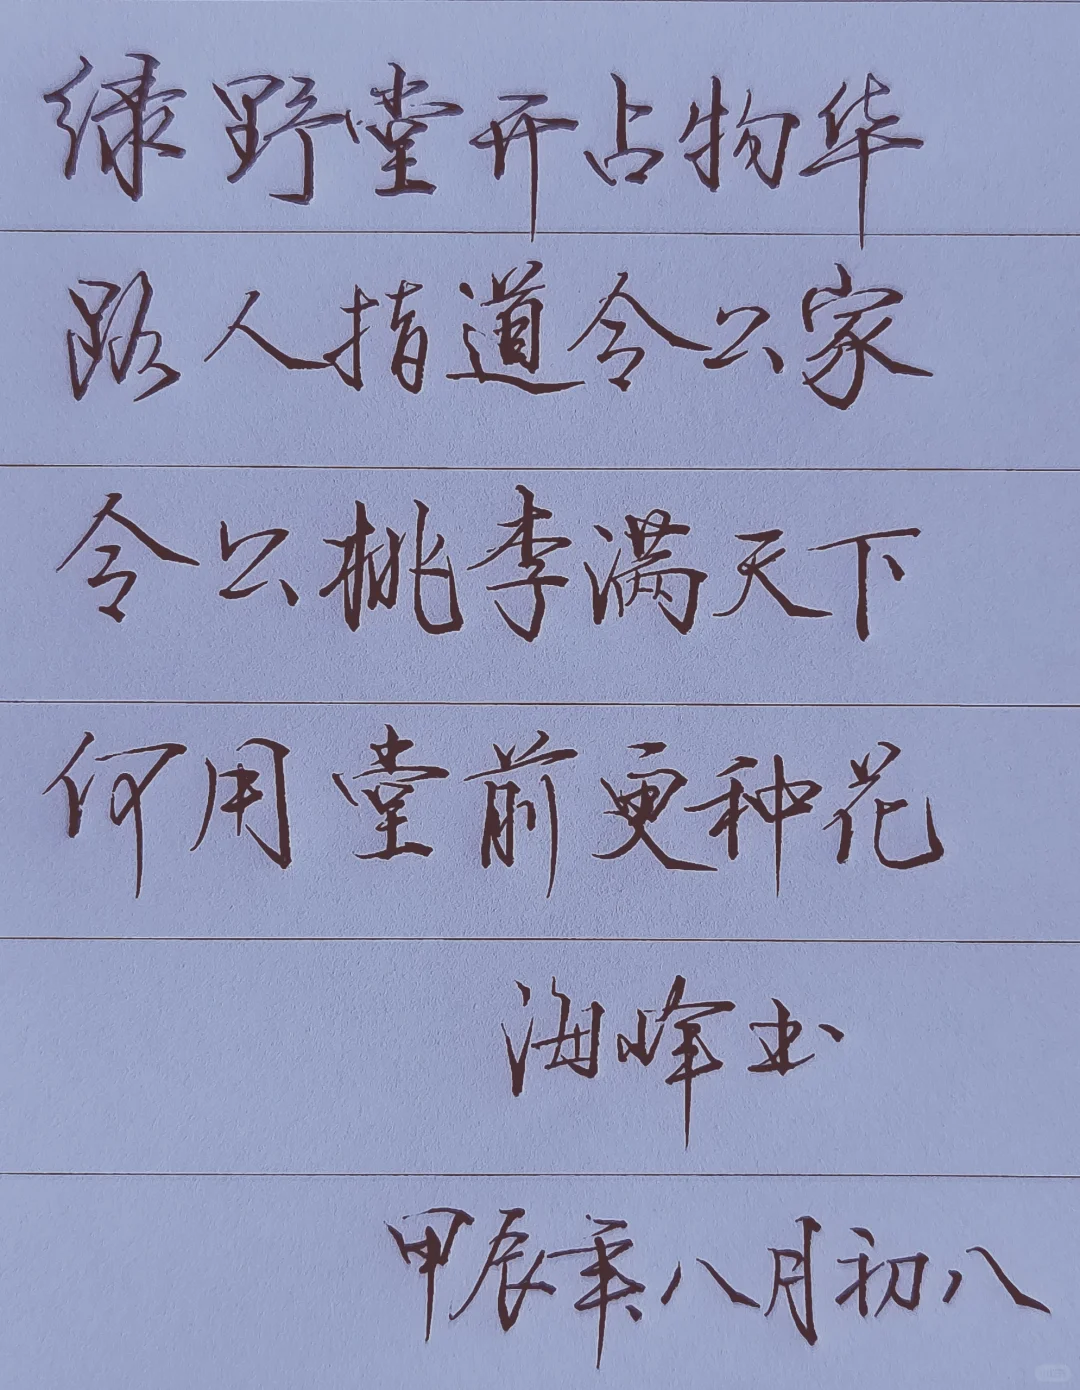 绿野堂开占物华
路人指道令公家
令公桃李满天下
何用堂前更种花
海峰书
甲辰年八月初八